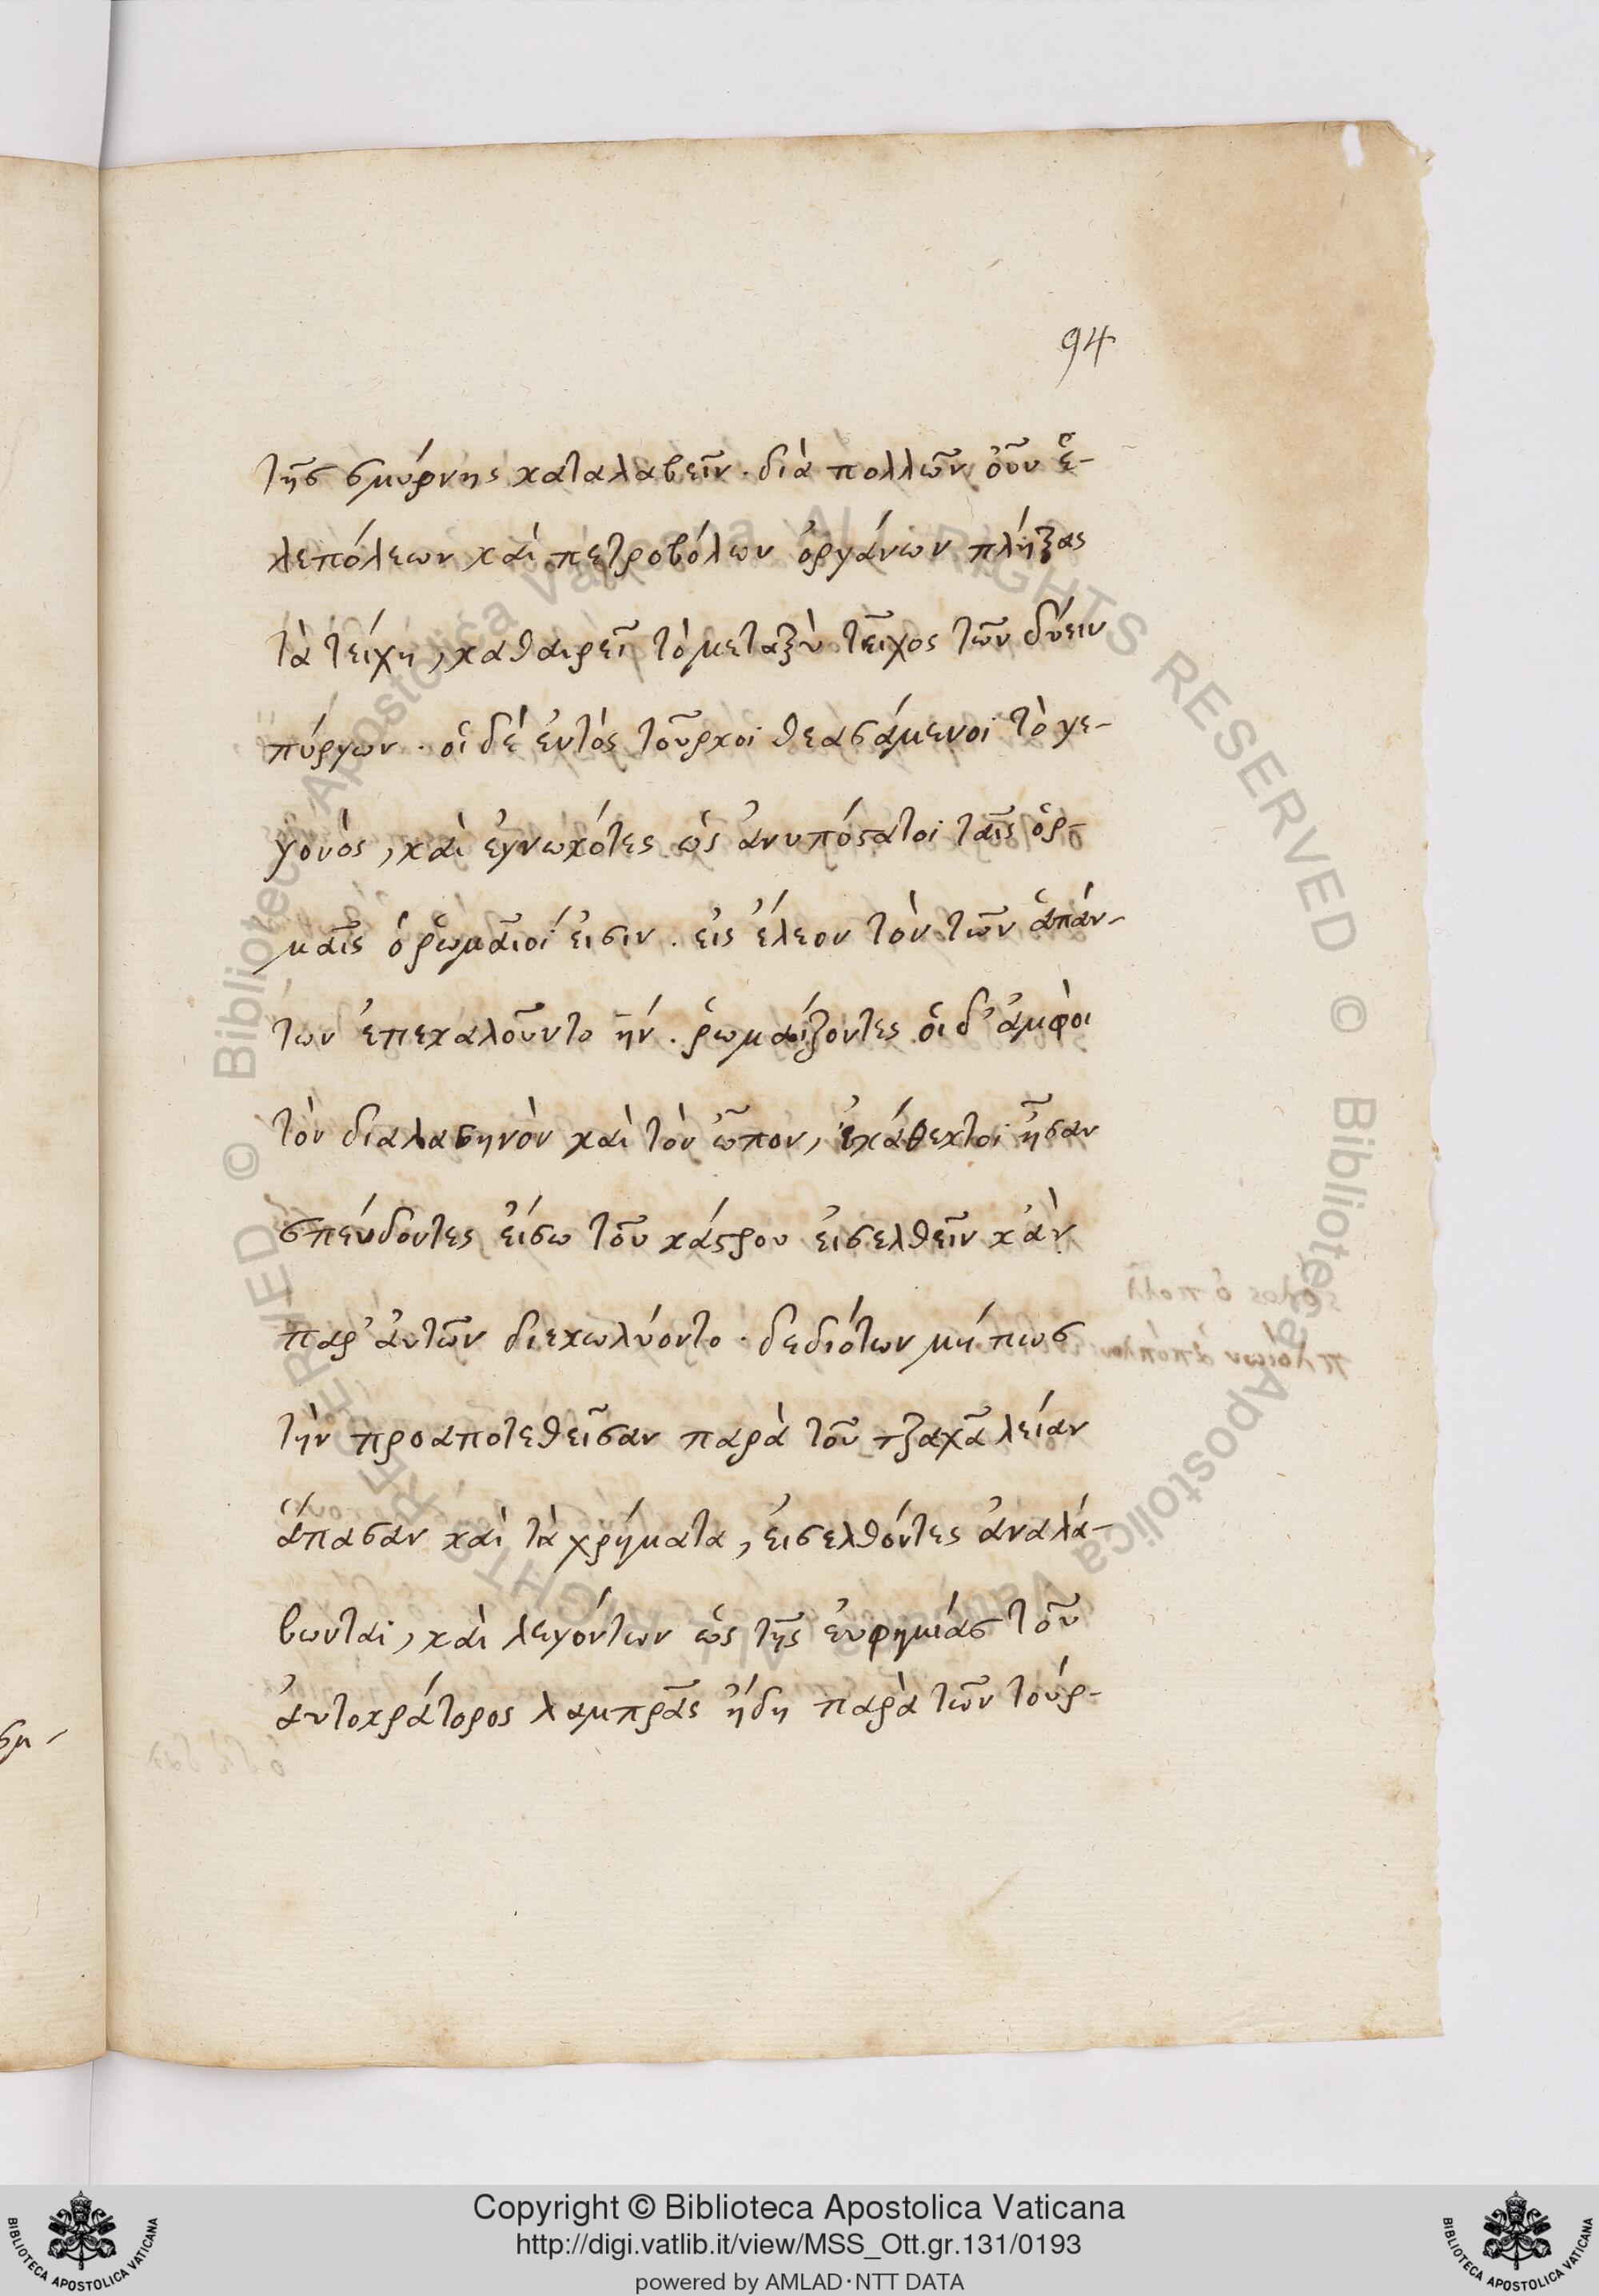 94
τῆς σμύρνης καταλαβεῖν. διὰ πολλῶν οὖν ἑ-
λεπόλεων καὶ πετροβόλων ὀργάνων πλήξας
τὰ τείχη, καθαιρεῖ τὸ μεταξὺ τεῖχος τῶν δύειν
πύργων. οἱ δὲ ἐντὸς τοῦρκοι θεασάμενοι τὸ γε-
γονὸς, καὶ ἐγνωκότες ὡς ἀνυπόστατοι ταῖς ὁρ-
μαῖς ὁ ῥωμαῖοί εἰσιν. εἰς ἔλεον τὸν τῶν ἁπάν-
των ἐπεκαλοῦντο ῆν. ῥωμαΐζοντες οἱ δ' ἀμφὶ
τὸν διαλασηνὸν καὶ τὸν ὦπον, ἀκάθεκτοι ἦσαν
σπεύδοντες εἴσω τοῦ κάστρου εἰσελθεῖν κἀν
παρ' αὐτῶν διεκωλύοντο. δεδιότων μήπως
τὴν προαποτεθεῖσαν παρὰ τοῦ τζαχᾶ λείαν
ἅπασαν καὶ τὰ χρήματα, εἰσελθόντες ἀναλά-
βωνται, καὶ λεγόντων ὡς τῆς εὐφημίας τοῦ
αὐτοκράτορος λαμπρᾶς ἤδη παρὰ τῶν τούρ-
Copyright © Biblioteca Apostolica Vaticana
http://digi.vatlib.it/view/MSS_Ott.gr.131/0193
powered by AMLAD·NTT DATA
BIBLIOTECA APOSTOLICA VATICANA
BIBLIOTECA APOSTOLICA VATICANA
© Biblioteca Apostolica Vaticana ALL RIGHTS RESERVED © Biblioteca Apostolica Vaticana ALL RIGHTS RESERVED